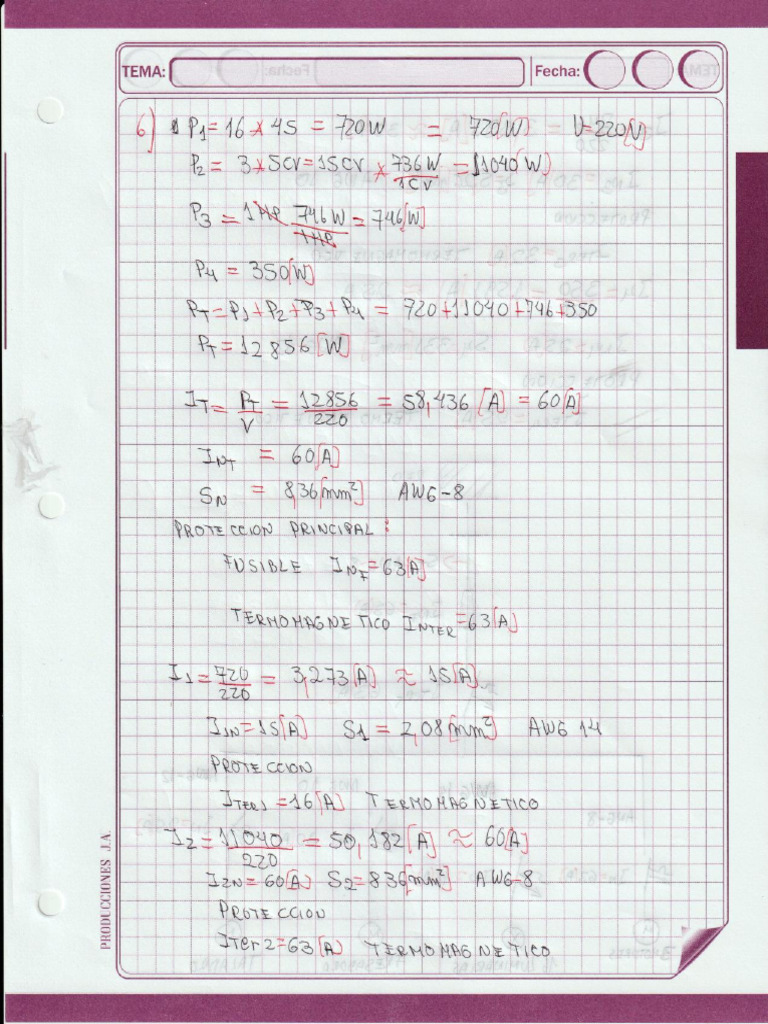 TEMA: Fecha:
6) P1 = 16 × 45 = 720W = 720[W] V=220[V]
P2 = 3 × 5CV = 15CV × 736W/1CV = 11040[W]
P3 = 1HP 746W/1HP = 746[W]
P4 = 350[W]
PT = P1 + P2 + P3 + P4 = 720+11040+746+350
PT = 12856[W]
IT = PT/V = 12856/220 = 58,436 [A] = 60[A]
INT = 60[A]
SN = 8,36[mm²] AWG-8
PROTECCION PRINCIPAL:
FUSIBLE INF = 63[A]
TERMOMAGNETICO INTER = 63[A]
I1 = 720/220 = 3,273[A] ≈ 15[A]
I1N = 15[A] S1 = 2,08[mm²] AWG 14
PROTECCION
ITER1 = 16[A] TERMOMAGNETICO
I2 = 11040/220 = 50,182[A] ≈ 60[A]
I2N = 60[A] S2 = 836[mm²] AWG-8
PROTECCION
ITer2 = 63[A] TERMOMAGNETICO
PRODUCCIONES J.A.